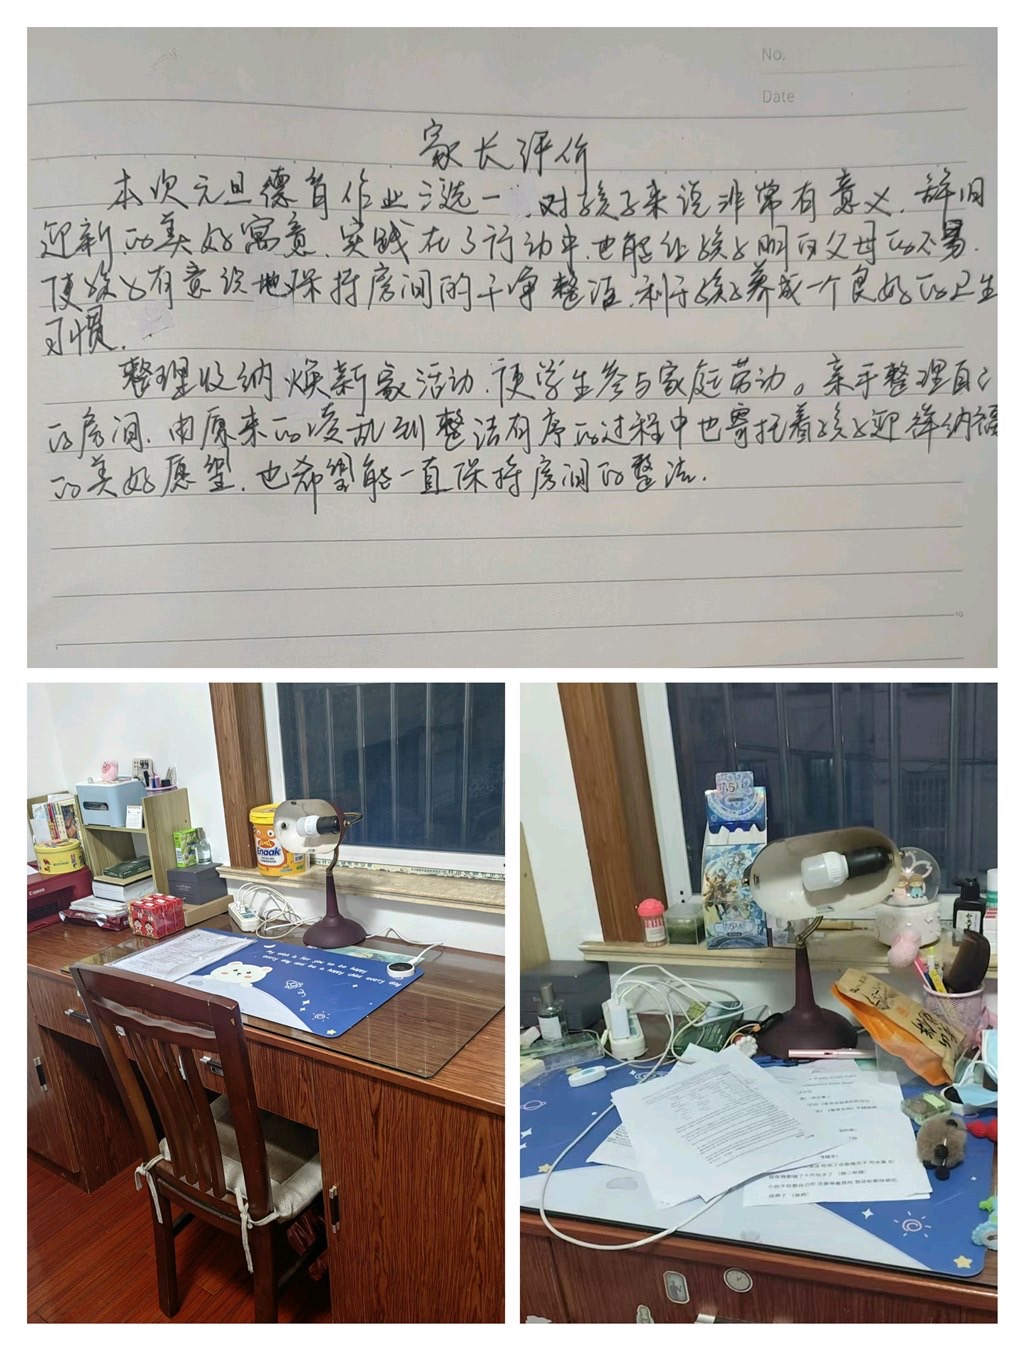 No.
Date
家长评价
本次元旦德育作业三选一,对孩子来说非常有意义,辞旧
迎新的美好寓意,实践在了行动中,也能让孩子明白父母的不易.
使孩子有意识地保持房间的干净整洁,利于孩子养成一个良好的卫生
习惯.
整理收纳焕新家活动,使学生参与家庭劳动。亲手整理自己
的房间,由原来的凌乱到整洁有序的过程中也寄托着孩子迎祥纳福
的美好愿望,也希望能一直保持房间的整洁.
Canon